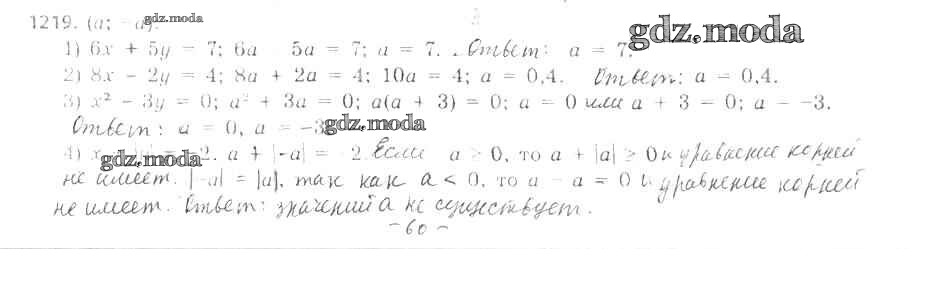 1219. (a; −a). gdz.moda
1) 6x + 5y = 7; 6a 5a = 7; a = 7. Ответ: a = 7. gdz.moda
2) 8x − 2y = 4; 8a + 2a = 4; 10a = 4; a = 0,4. Ответ: a = 0,4.
3) x² − 3y = 0; a² + 3a = 0; a(a + 3) = 0; a = 0 или a + 3 = 0; a = −3.
Ответ: a = 0, a = −3 gdz.moda
4) x gdz.moda 2. a + |−a| = 2. Если a ≥ 0, то a + |a| ≥ 0 и уравнение корней
не имеет. |−a| = |a|, так как a < 0, то a − a = 0 и уравнение корней
не имеет. Ответ: значений a не существует.
− 60 −